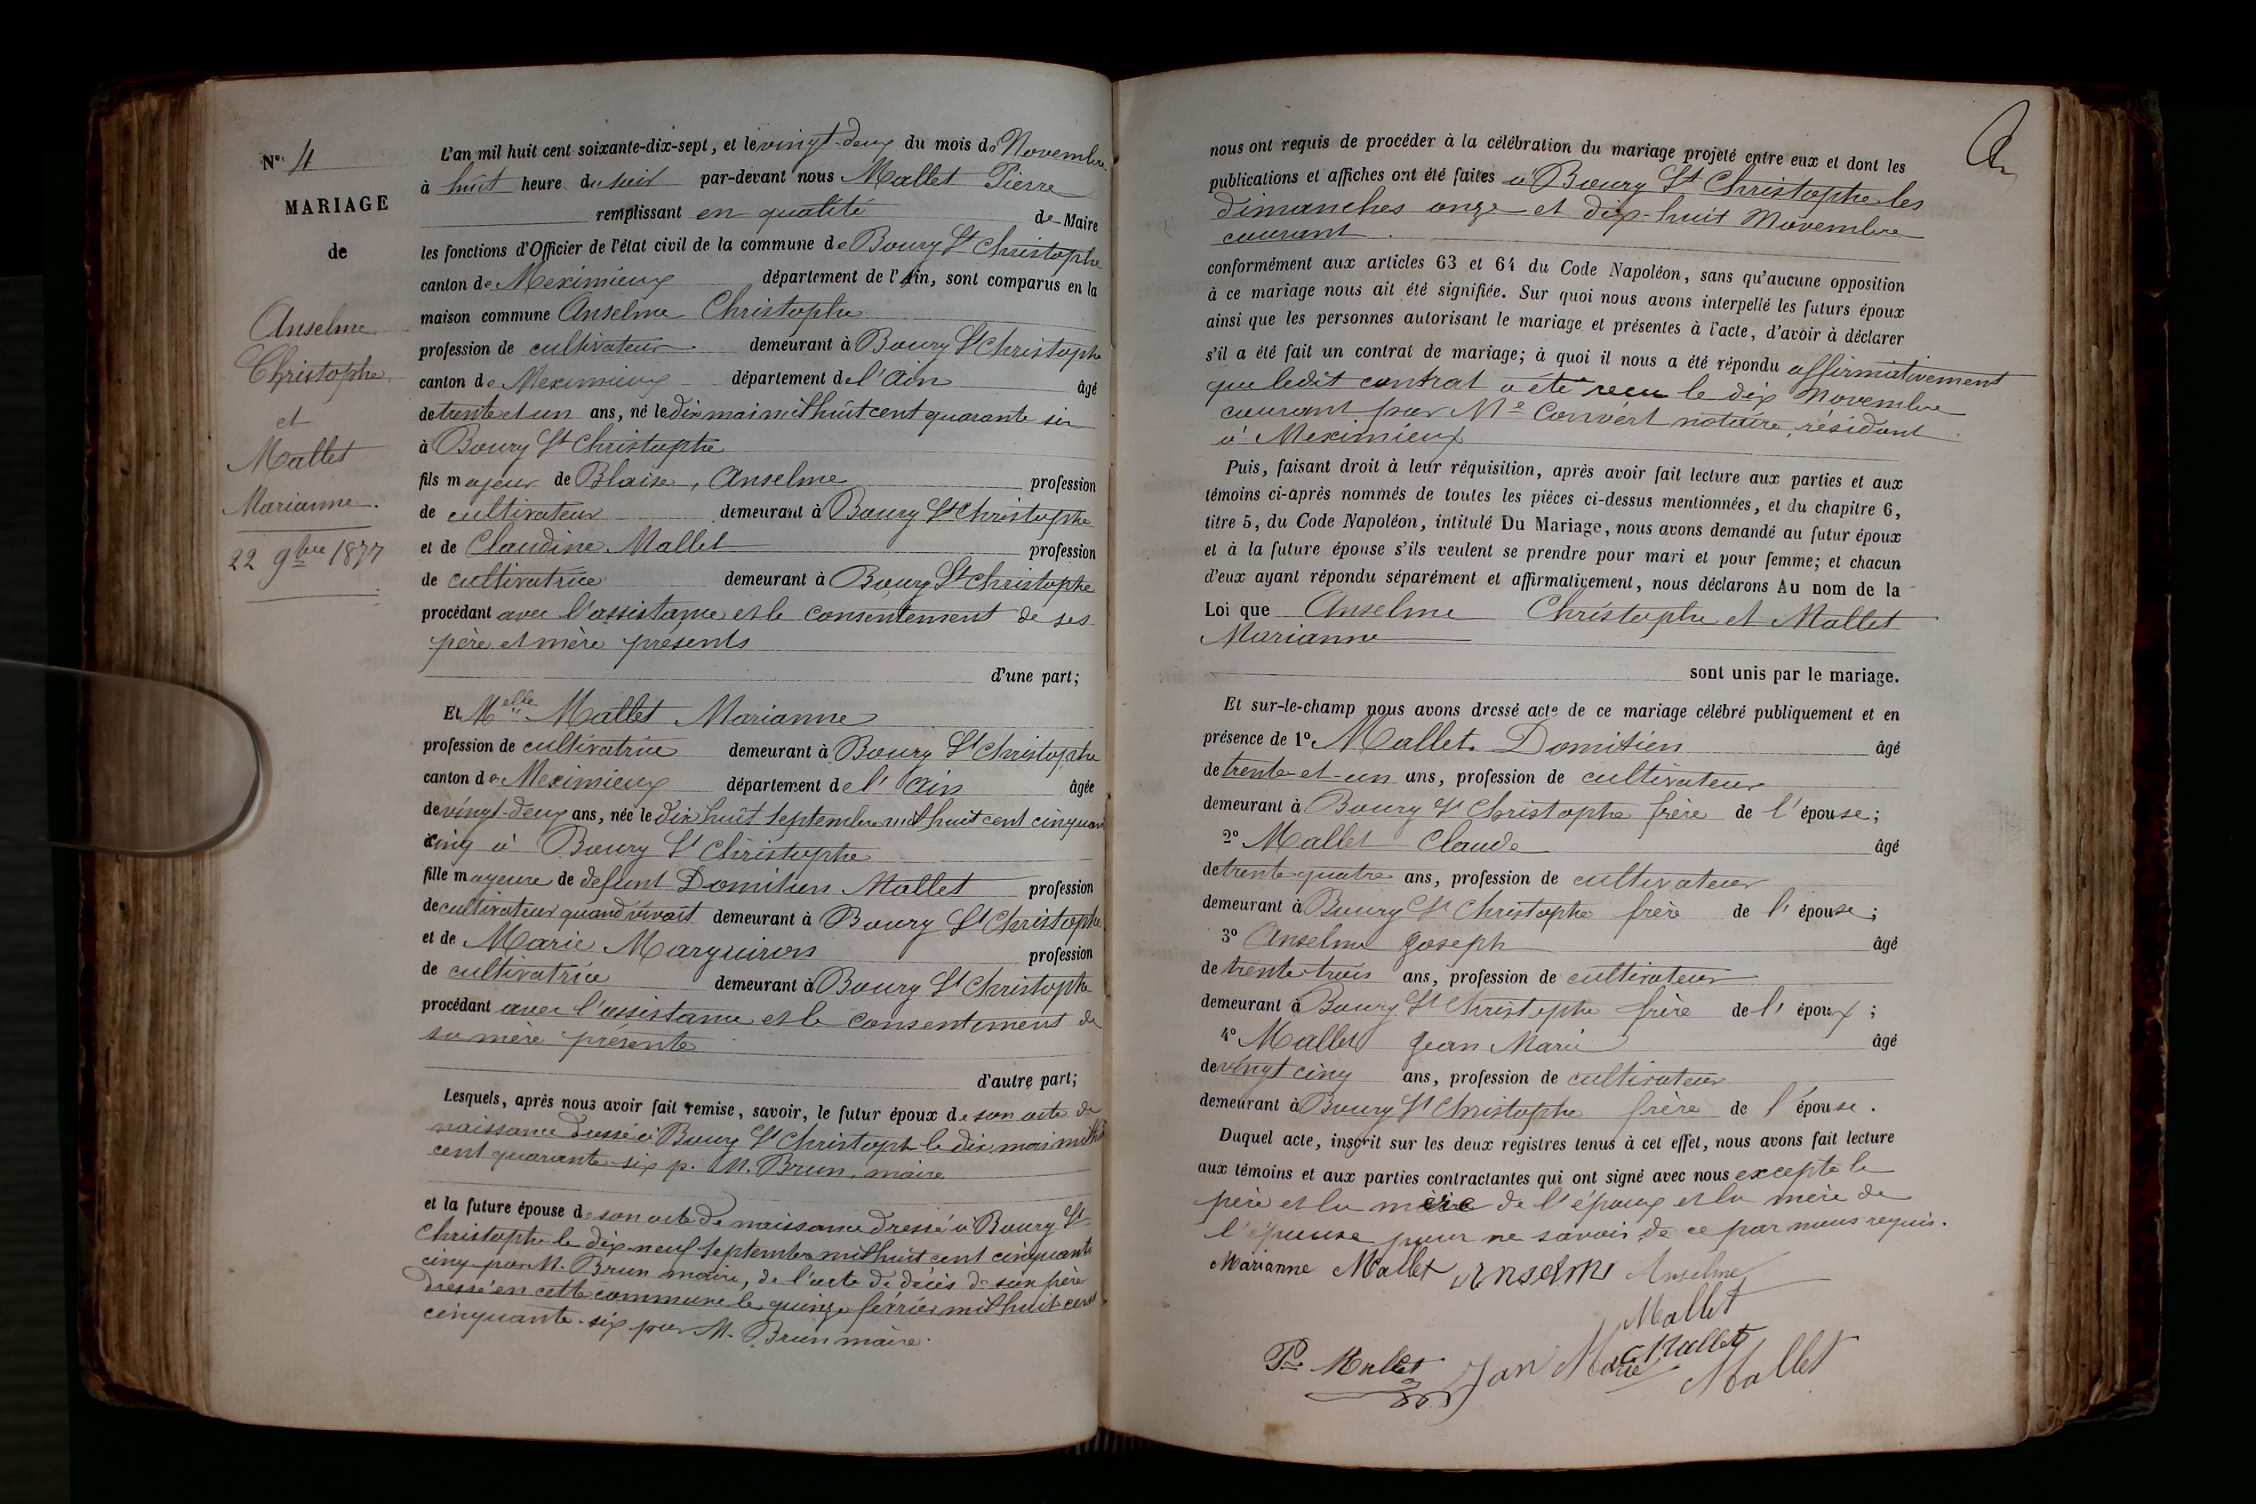 N° 4
MARIAGE
de
Anselme
Christophe
et
Mallet
Marianne.
22 9bre 1877
L'an mil huit cent soixante-dix-sept, et le vingt-deux du mois de Novembre
à huit heure du soir par-devant nous Mallet Pierre
remplissant en qualité de Maire
les fonctions d'Officier de l'état civil de la commune de Bourg St Christophe
canton de Meximieux département de l'Ain, sont comparus en la
maison commune Anselme Christophe
profession de cultivateur demeurant à Bourg St Christophe
canton de Meximieux département de l'Ain âgé
de trente et un ans, né le dix mai mil huit cent quarante six
à Bourg St Christophe
fils majeur de Blaise, Anselme profession
de cultivateur demeurant à Bourg St Christophe
et de Claudine Mallet profession
de cultivatrice demeurant à Bourg St Christophe
procédant avec l'assistance et le consentement de ses
père et mère présents
d'une part;
Et Melle Mallet Marianne
profession de cultivatrice demeurant à Bourg St Christophe
canton de Meximieux département de l'Ain âgée
de vingt-deux ans, née le dix huit septembre mil huit cent cinquante
cinq à Bourg St Christophe
fille mayeure de défunt Domitien Mallet profession
de cultivateur quand vivait demeurant à Bourg St Christophe
et de Marie Marguiron profession
de cultivatrice demeurant à Bourg St Christophe
procédant avec l'assistance et le consentement de
sa mère présente
d'autre part;
Lesquels, après nous avoir fait remise, savoir, le futur époux de son acte de
naissance dressé à Bourg St Christoph le dix mai mil huit
cent quarante-six p. M. Brun, maire
et la future épouse de son acte de naissance dressé à Bourg St
Christophe le dix neuf septembre mil huit cent cinquante
cinq par M. Brun maire, de l'acte de décès de son père
dressé en cette commune le quinze février mil huit cent
cinquante-six par M. Brun maire.
nous ont requis de procéder à la célébration du mariage projeté entre eux et dont les
publications et affiches ont été faites à Bourg St Christophe les
dimanches onze et dix-huit Novembre
courant.
conformément aux articles 63 et 64 du Code Napoléon, sans qu'aucune opposition
à ce mariage nous ait été signifiée. Sur quoi nous avons interpellé les futurs époux
ainsi que les personnes autorisant le mariage et présentes à l'acte, d'avoir à déclarer
s'il a été fait un contrat de mariage; à quoi il nous a été répondu affirmativement
que ledit contrat a été reçu le dix Novembre
courant par Me Convert notaire, résidant
à Meximieux
Puis, faisant droit à leur réquisition, après avoir fait lecture aux parties et aux
témoins ci-après nommés de toutes les pièces ci-dessus mentionnées, et du chapitre 6,
titre 5, du Code Napoléon, intitulé Du Mariage, nous avons demandé au futur époux
et à la future épouse s'ils veulent se prendre pour mari et pour femme; et chacun
d'eux ayant répondu séparément et affirmativement, nous déclarons Au nom de la
Loi que Anselme Christophe et Mallet
Marianne
sont unis par le mariage.
Et sur-le-champ nous avons dressé acte de ce mariage célébré publiquement et en
présence de 1° Mallet Domitien âgé
de trente-et-un ans, profession de cultivateur
demeurant à Bourg St Christophe frère de l'épouse;
2° Mallet Claude âgé
de trente quatre ans, profession de cultivateur
demeurant à Bourg St Christophe frère de l'épouse;
3° Anselme Joseph âgé
de trente-trois ans, profession de cultivateur
demeurant à Bourg St Christophe frère de l'époux;
4° Mallet Jean Marie âgé
de vingt cinq ans, profession de cultivateur
demeurant à Bourg St Christophe frère de l'épouse.
Duquel acte, inscrit sur les deux registres tenus à cet effet, nous avons fait lecture
aux témoins et aux parties contractantes qui ont signé avec nous excepté le
père et la mère de l'époux et la mère de
l'épouse pour ne savoir de ce par nous requis.
Marianne Mallet Anselme Anselme
Mallet
Mallet
Pre Mallet Jan Marie Mallet